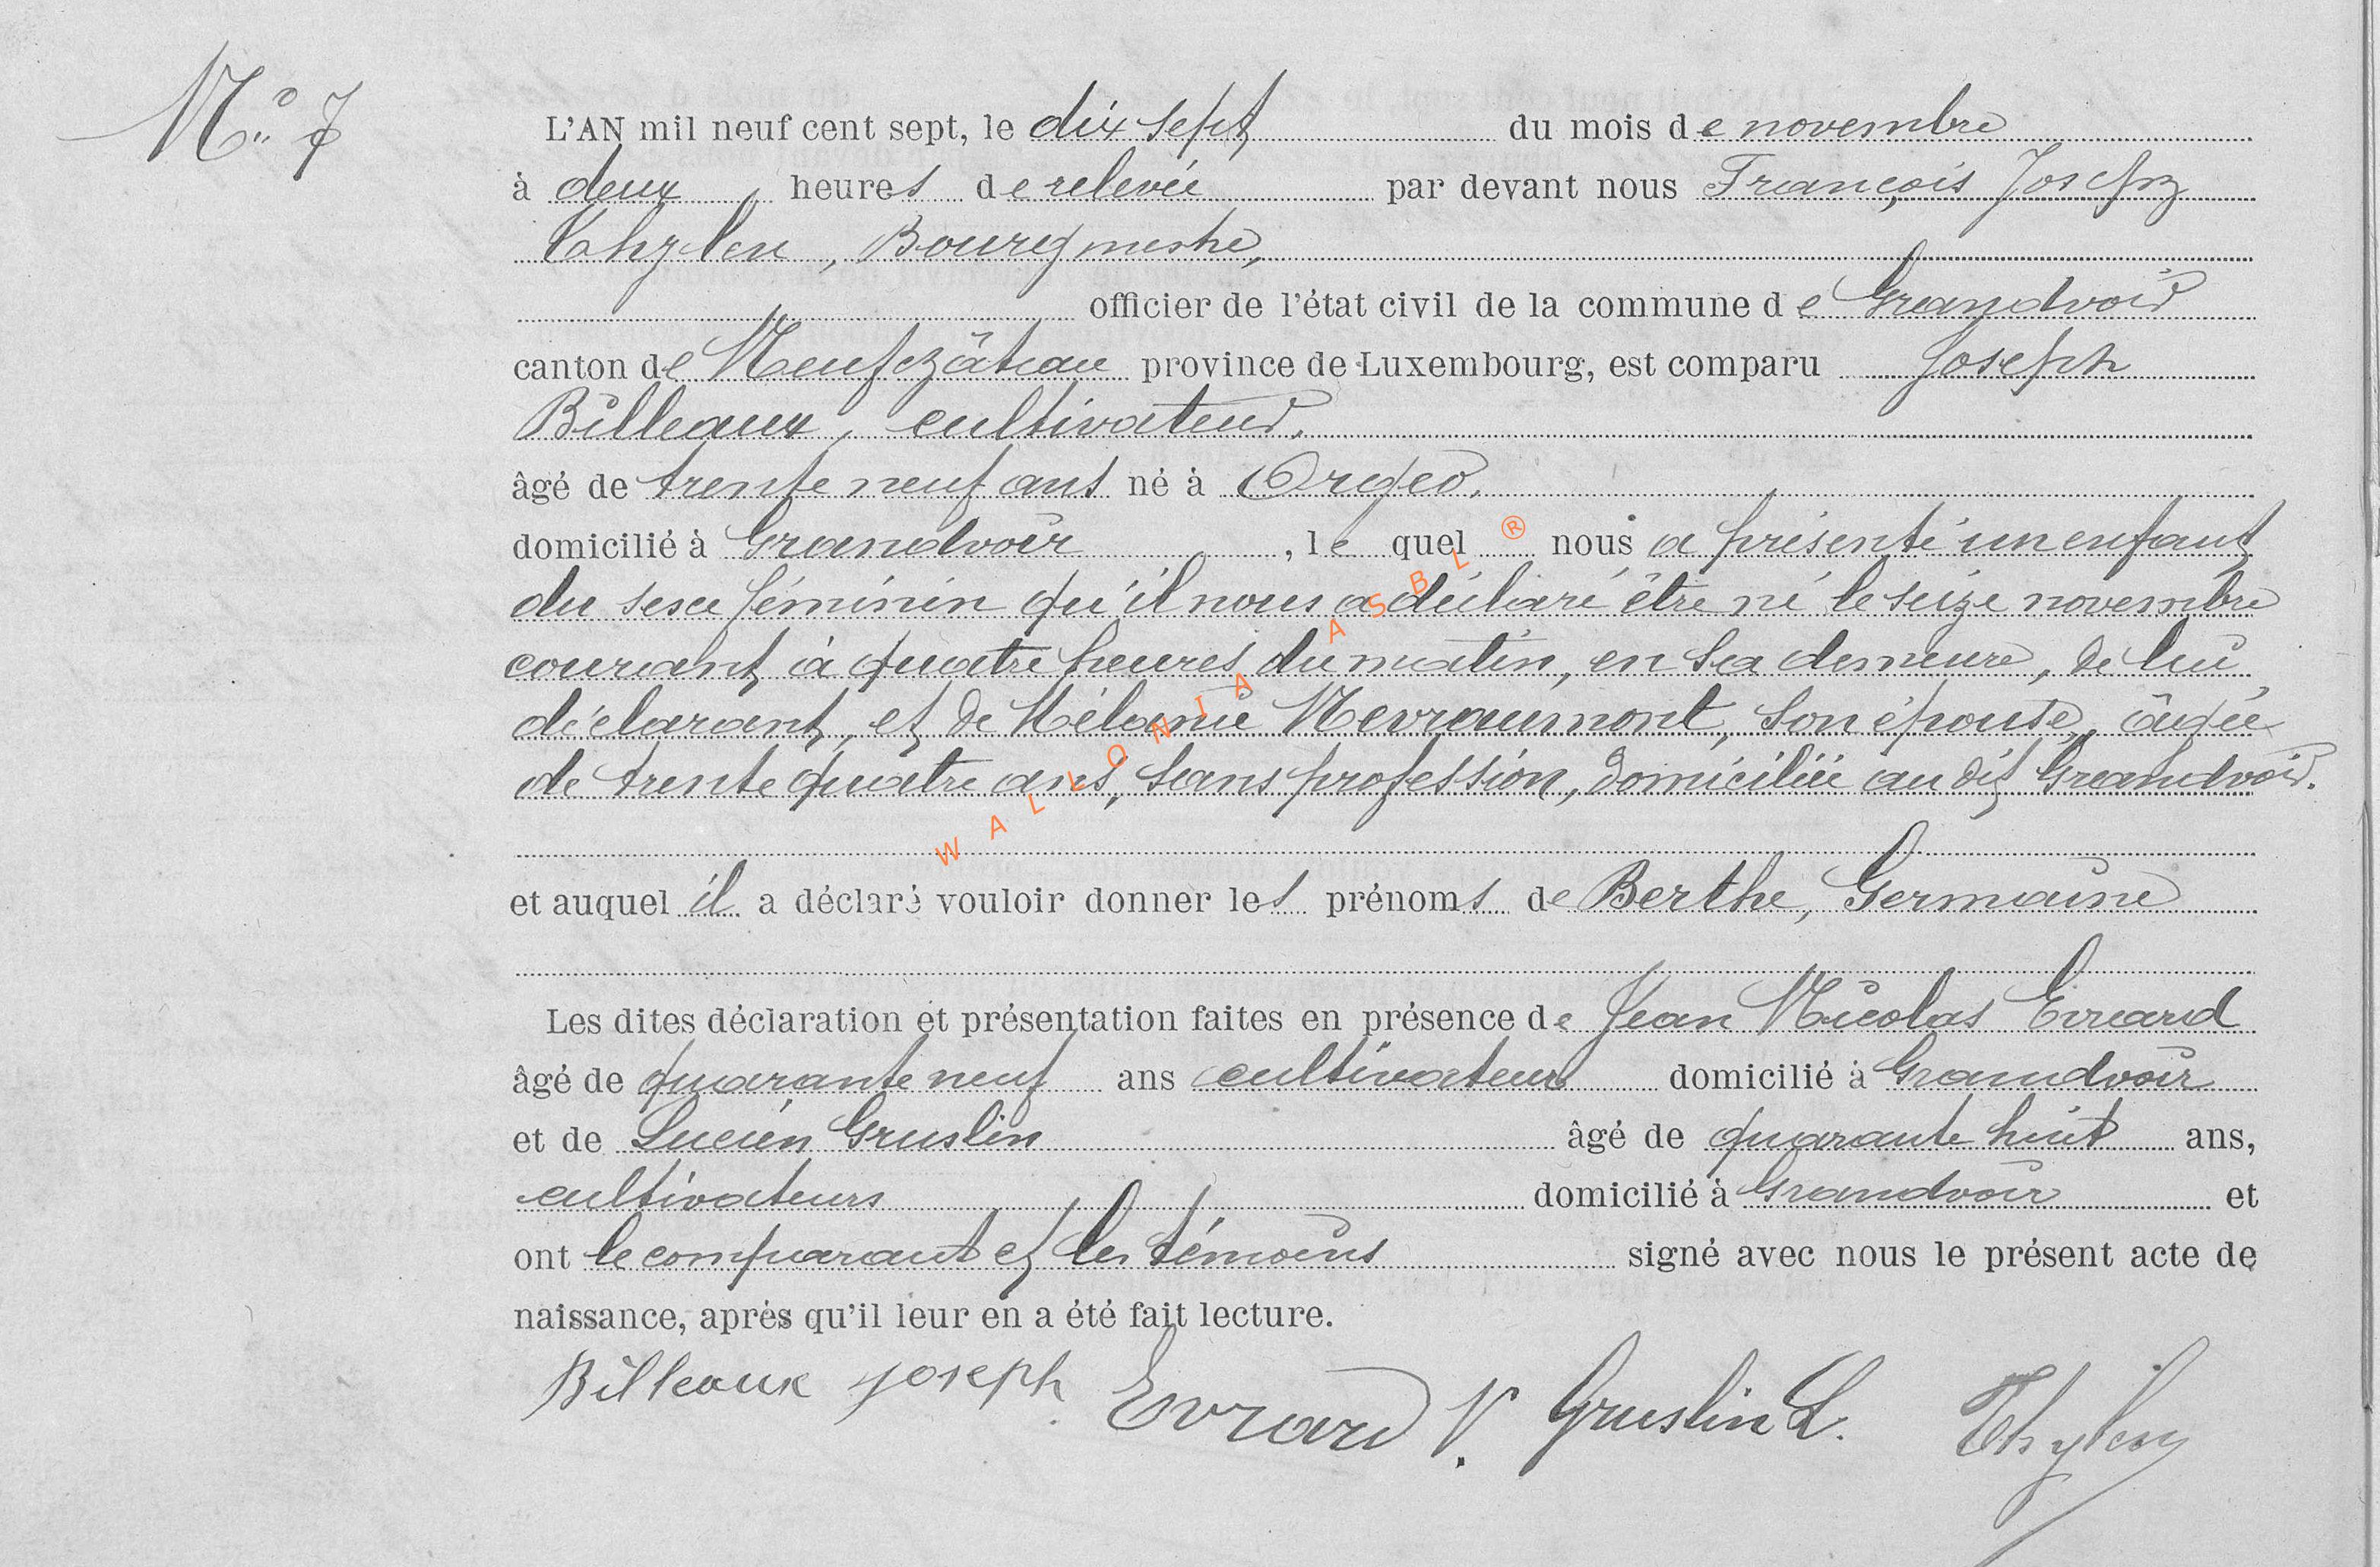 N° 7
L'AN mil neuf cent sept, le dix sept du mois de novembre
à deux heures de relevée par devant nous François Joseph
Thylen, Bourgmestre,
officier de l'état civil de la commune de Grandvoir
canton de Neufchâteau province de Luxembourg, est comparu Joseph
Billeaux, cultivateur,
âgé de trente neuf ans né à Orgeo,
domicilié à Grandvoir, le quel nous a présenté un enfant
du sexe féminin qu'il nous a déclaré être né le seize novembre
courant à quatre heures du matin, en sa demeure, de lui
déclarant, et de Mélanie Nevraumont, son épouse, âgée
de trente quatre ans, sans profession, domiciliée au dit Grandvoir.
et auquel il a déclaré vouloir donner les prénoms de Berthe, Germaine
Les dites déclaration et présentation faites en présence de Jean Nicolas Evrard
âgé de quarante neuf ans cultivateur domicilié à Grandvoir
et de Lucien Gruslin âgé de quarante huit ans,
cultivateurs domicilié à Grandvoir et
ont le comparant et les témoins signé avec nous le présent acte de
naissance, après qu'il leur en a été fait lecture.
Billeaux joseph Evrard N. Gruslin L. Thylen
WALLONIA ASBL ®